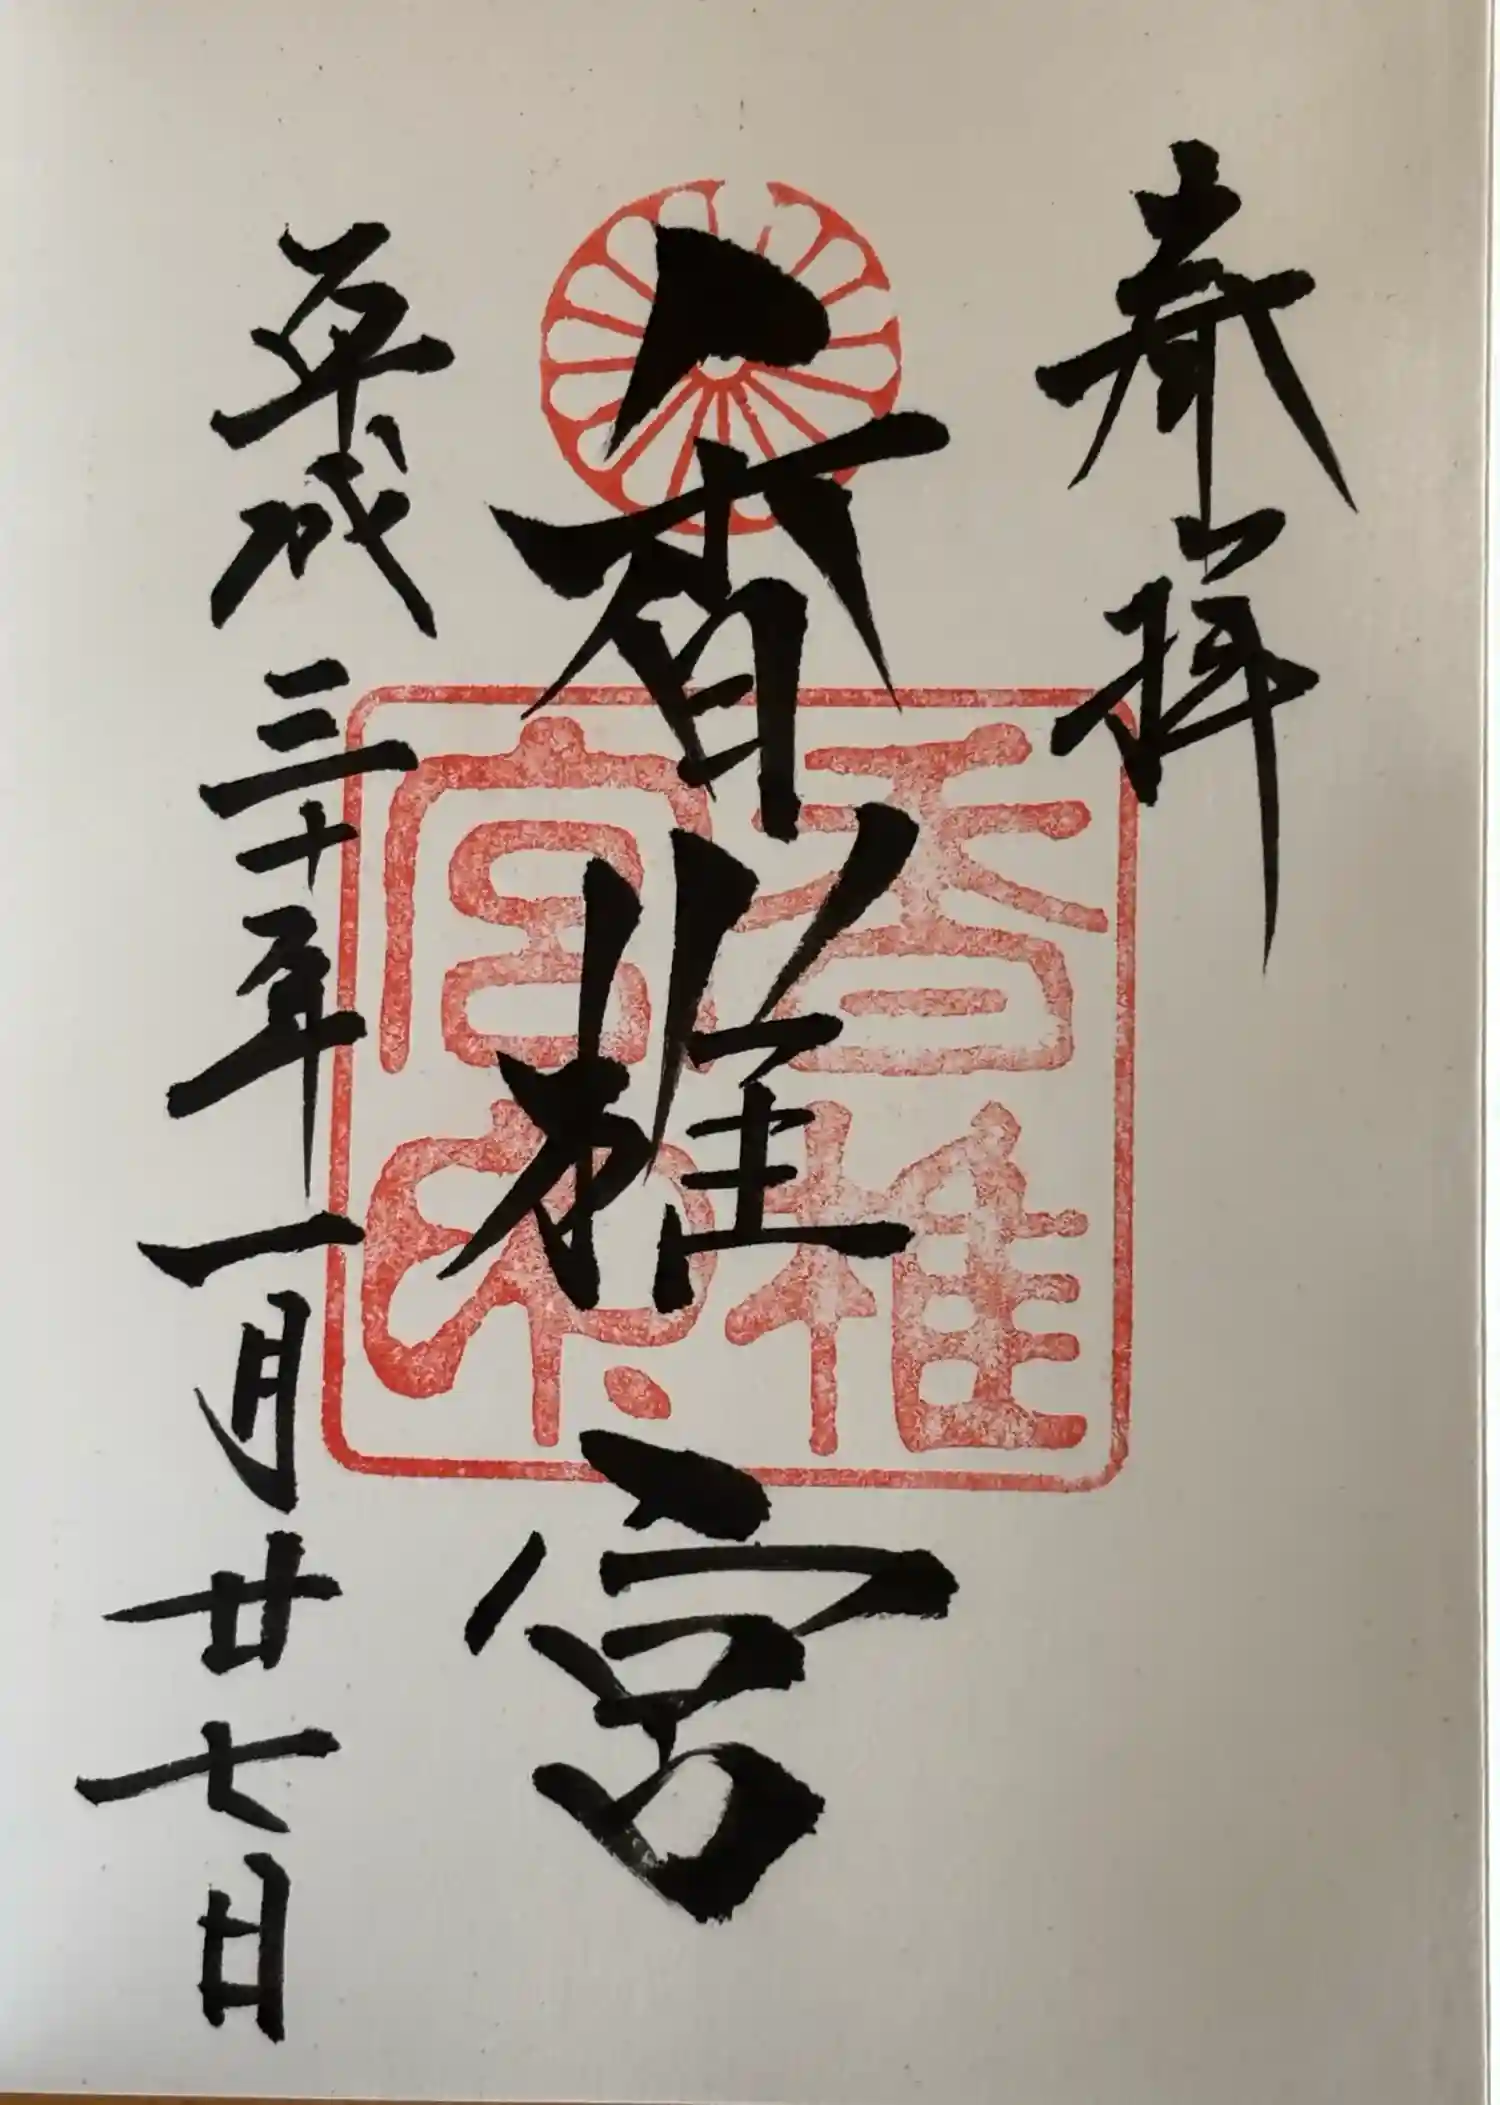 奉拝
香椎宮
香椎宮印
平成三十年一月廿七日